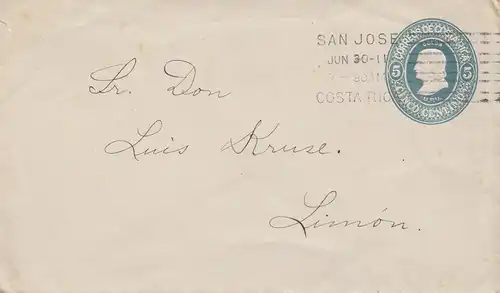 SAN JOSE
JUN 30-11
COSTA RICA
CORREOS DE COSTA RICA
COLON
5 5
U.P.U.
CINCO CENTIMOS
Sr. Don
Luis Kruse.
Limón.